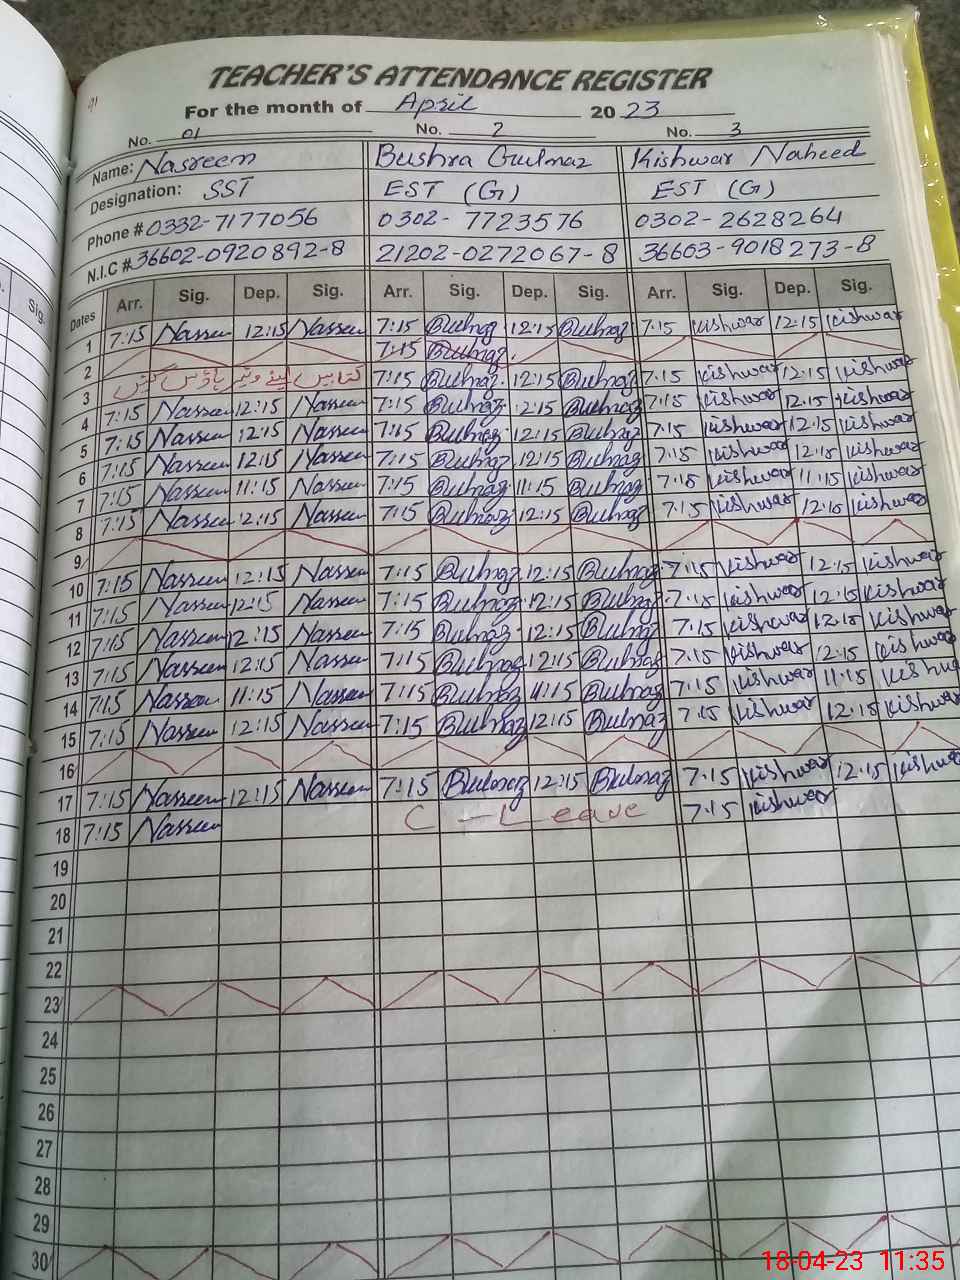 TEACHER'S ATTENDANCE REGISTER
For the month of April 2023
No. 01 No. 2 No. 3
Name: Nasreen Bushra Gulnaz Kishwar Naheed
Designation: SST EST (G) EST (G)
Phone # 0332-7177056 0302-7723576 0302-2628264
N.I.C # 36602-0920892-8 21202-0272067-8 36603-9018273-8
Dates Arr. Sig. Dep. Sig. Arr. Sig. Dep. Sig. Arr. Sig. Dep. Sig.
1 7:15 Nasreen 12:15 Nasreen 7:15 Gulnaz 12:15 Gulnaz 7:15 Kishwar 12:15 Kishwar
2 7:15 Gulnaz
3 کتابیں لینے 7:15 Gulnaz 12:15 Gulnaz 7:15 Kishwar 12:15 Kishwar
4 7:15 Nasreen 12:15 Nasreen 7:15 Gulnaz 12:15 Gulnaz 7:15 Kishwar 12:15 Kishwar
5 7:15 Nasreen 12:15 Nasreen 7:15 Gulnaz 12:15 Gulnaz 7:15 Kishwar 12:15 Kishwar
6 7:15 Nasreen 12:15 Nasreen 7:15 Gulnaz 12:15 Gulnaz 7:15 Kishwar 12:15 Kishwar
7 7:15 Nasreen 11:15 Nasreen 7:15 Gulnaz 11:15 Gulnaz 7:15 Kishwar 11:15 Kishwar
8 7:15 Nasreen 12:15 Nasreen 7:15 Gulnaz 12:15 Gulnaz 7:15 Kishwar 12:15 Kishwar
9
10 7:15 Nasreen 12:15 Nasreen 7:15 Gulnaz 12:15 Gulnaz 7:15 Kishwar 12:15 Kishwar
11 7:15 Nasreen 12:15 Nasreen 7:15 Gulnaz 12:15 Gulnaz 7:15 Kishwar 12:15 Kishwar
12 7:15 Nasreen 12:15 Nasreen 7:15 Gulnaz 12:15 Gulnaz 7:15 Kishwar 12:15 Kishwar
13 7:15 Nasreen 12:15 Nasreen 7:15 Gulnaz 12:15 Gulnaz 7:15 Kishwar 12:15 Kishwar
14 7:15 Nasreen 11:15 Nasreen 7:15 Gulnaz 11:15 Gulnaz 7:15 Kishwar 11:15 Kishwar
15 7:15 Nasreen 12:15 Nasreen 7:15 Gulnaz 12:15 Gulnaz 7:15 Kishwar 12:15 Kishwar
16
17 7:15 Nasreen 12:15 Nasreen 7:15 Gulnaz 12:15 Gulnaz 7:15 Kishwar 12:15 Kishwar
18 7:15 Nasreen C - Leave 7:15 Kishwar
19
20
21
22
23
24
25
26
27
28
29
30
18-04-23 11:35